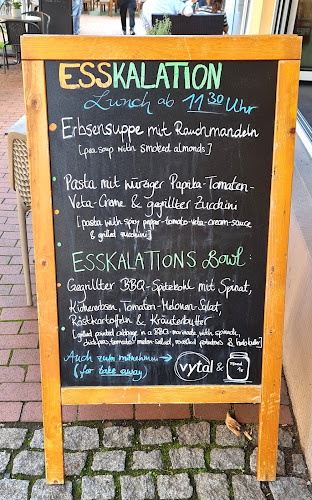 ESSKALATION
Lunch ab 11 30 Uhr
Erbsensuppe mit Rauchmandeln
[pea soup with smoked almonds]
Pasta mit würziger Paprika-Tomaten-
Veta-Creme & gegrillter Zucchini
[pasta with spicy pepper-tomato-veta-cream-sauce
& grilled zucchini]
ESSKALATIONS Bowl:
Gegrillter BBQ-Spitzkohl mit Spinat,
Kichererbsen, Tomaten-Melonen-Salat,
Röstkartoffeln & Kräuterbutter
[grilled pointed cabbage in a BBQ-marinade, with spinach,
chickpeas, tomatoe-melon-salad, roasted potatoes & herb butter]
Auch zum mitnehmen
(for take away)
vytal &